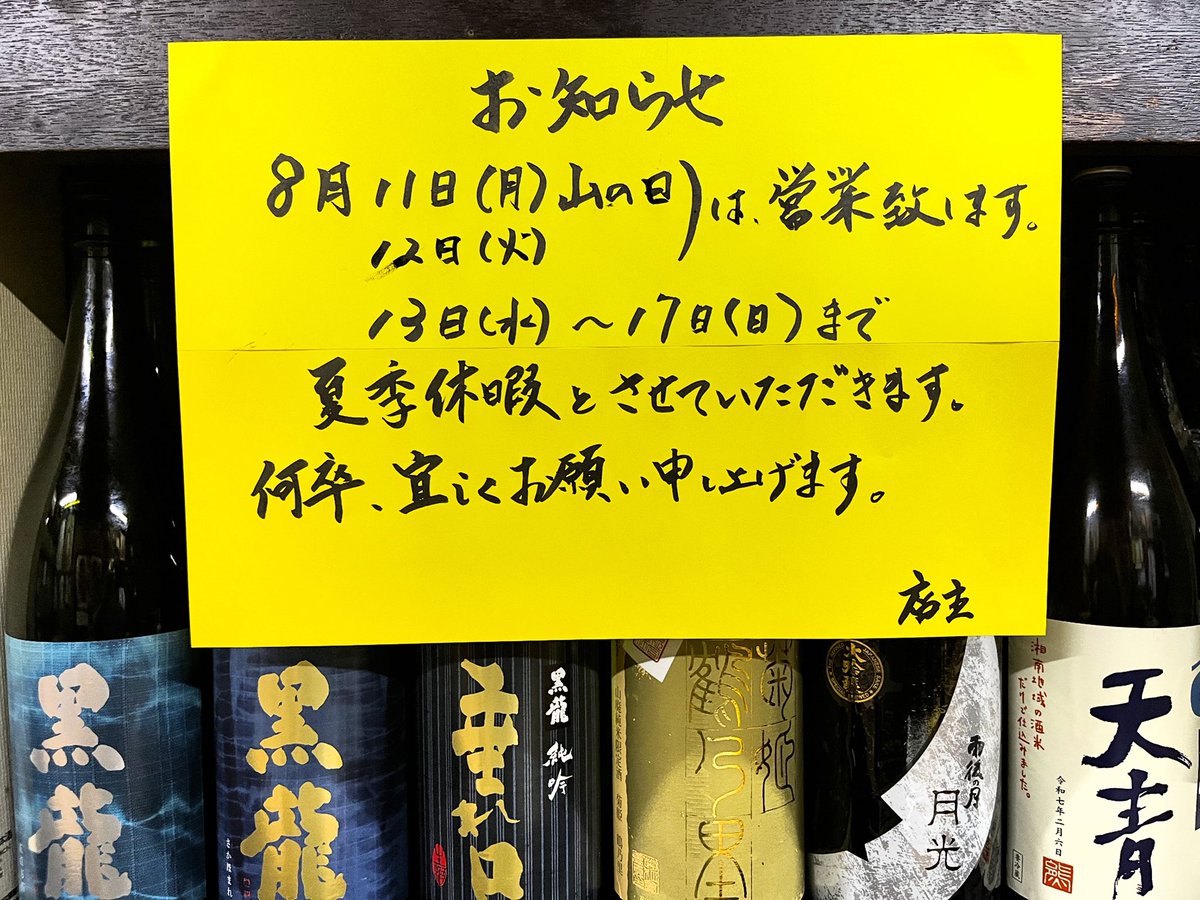 お知らせ
8月11日(月)山の日)は、営業致します。
12日(火)
13日(水)〜17日(日)まで
夏季休暇とさせていただきます。
何卒、宜しくお願い申し上げます。
店主
黒龍
黒龍
さかほまれ
辛口
黒龍 純吟
菊姫
鶴乃里
雨後の月
月光
湘南地域の酒米
だけで仕込みました。
天青
令和七年二月六日